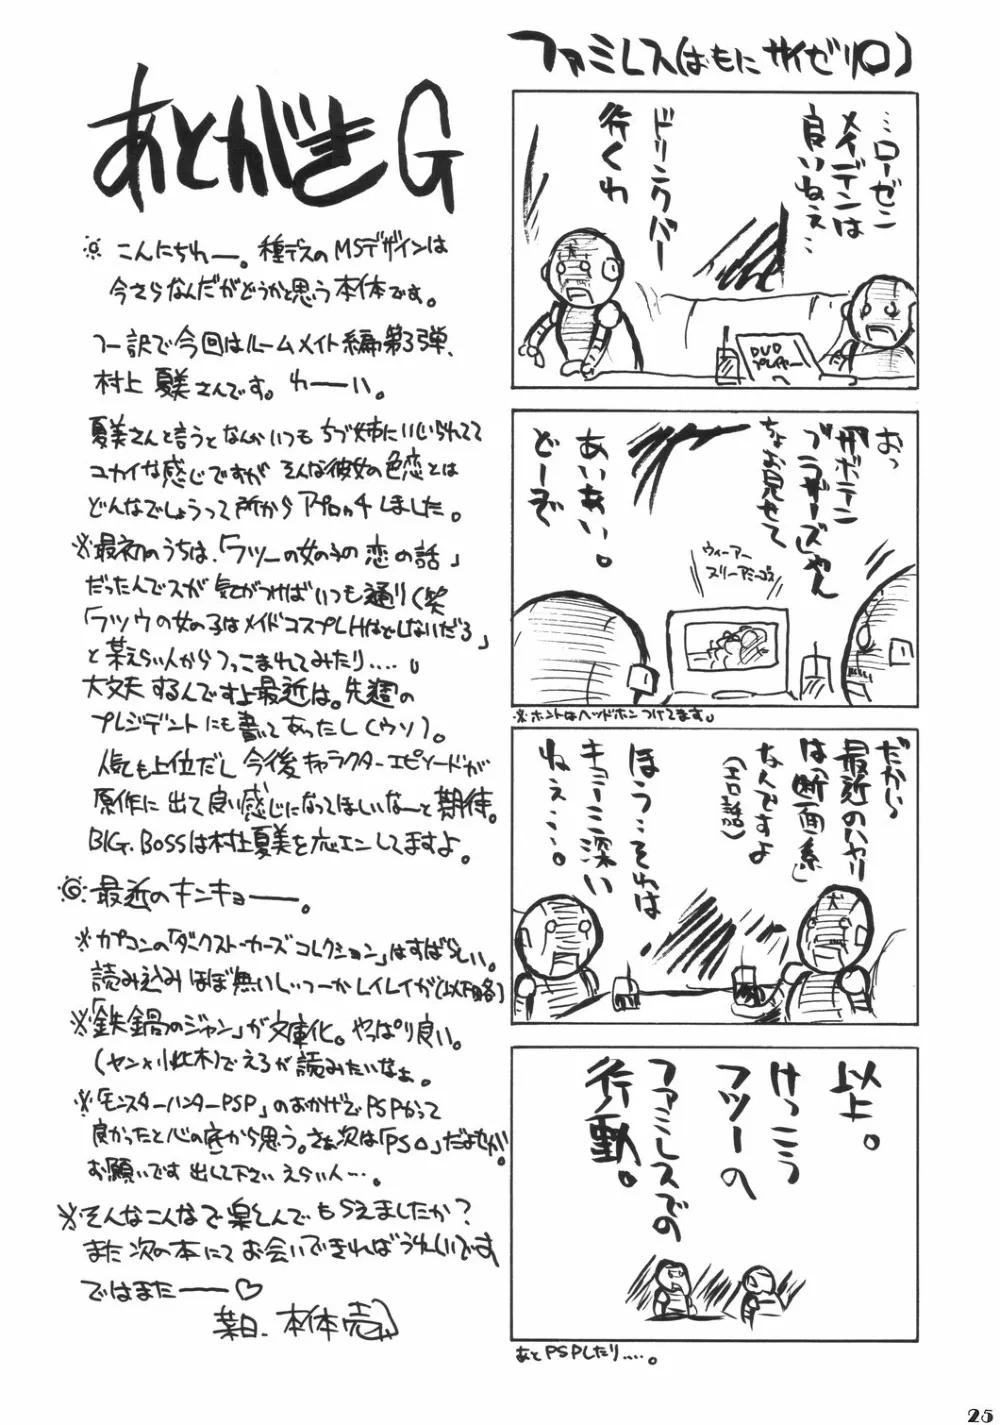 あとがきG
こんにちわー。種デスのMSデザインは
今さらなんだがどうかと思う本体です。
つー訳で今回はルームメイト編第3弾、
村上 夏美さんです。わーい。
夏美さんと言うとなんかいつも ちづ姉にいじられてて
ユカイな感じですが そんな彼女の色恋とは
どんなでしょうって所からアプローチしました。
※最初のうちは、「フツーの女の子の恋の話」
だったんでスが 気がつけばいつも通り(笑
「フツウの女の子はメイドコスプレHはしないだろ」
と某えらい人からつっこまれてみたり.....。
大丈夫 するんですよ最近は。先週の
プレジデントにも書いてあったし(ウソ)。
人気も上位だし 今後キャラクターエピソードが
原作に出て良い感じになってほしいなーと期待。
BIG.BOSSは村上夏美を応エンしてますよ。
最近のキンキョー。
※カプコンの「ダークストーカーズコレクション」はすばらしい。
読み込みほぼ無いしっつーかレイレイが(以下略)
※「鉄鍋のジャン」が文庫化。やっぱり良い。
(ヤン×小此木)でえろが読みたいなぁ。
※「モンスターハンターPSP」のおかげでPSPかって
良かったと心の底から思う。さぁ次は「PS△」だよせが
お願いです 出して下さい えらい人…。
※そんなこんなで楽しんでもらえましたか?
また次の本にてお会いできればうれしいです
ではまたー♡
本体売
ファミレス(はもに サイゼリ○)
…ローゼン
メイデンは
良いねぇ…
ドリンクバー
行くわ
DVD
プレイヤー
へ
おっ
『サボテン
ブラザーズ』じゃん
ちょお見せて
あいあい。
どーぞ
ウィーアー
スリーアミーゴス
※ホントはヘッドホンつけてます。
だから
最近のハヤリ
は「断面系」
なんですよ
(エロ話)
ほう…それは
キョーミ深い
ねぇ….
以上。
けっこう
フツーの
ファミレスでの
行動。
あとPSPしたり….。
25